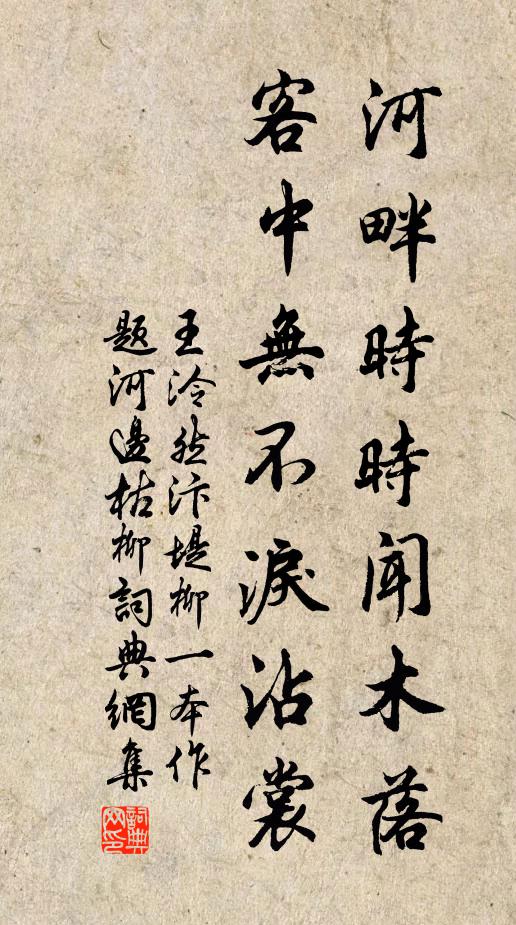 河畔時時聞木落
客中無不淚沾裳
王泠然汴堤柳一本作
題河邊枯柳詞典網集
詞典網印